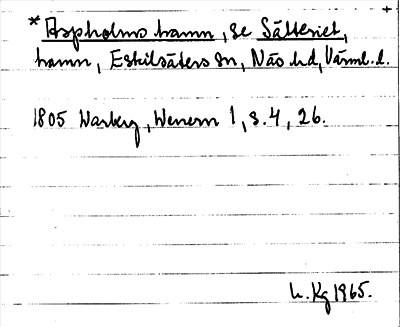 +
* Aspholms hamn, se Sätteriet,
hamn, Eskilsäters sn, Näs hd, Värml. l.
1805 Warberg, Wenern 1, s. 4, 26.
L. Kg 1965.